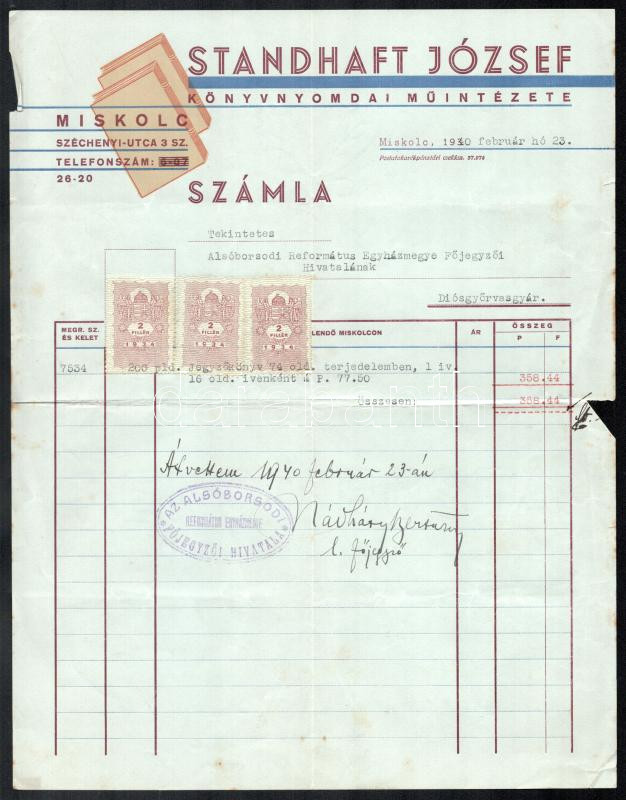 STANDHAFT JÓZSEF
KÖNYVNYOMDAI MŰINTÉZETE
MISKOLC
SZÉCHENYI-UTCA 3 SZ.
TELEFONSZÁM: 6-07
26-20
Miskolc, 1940 február hó 23.
Postatakarékpénztári csekksz. 57.974
SZÁMLA
Tekintetes
Alsóborsodi Református Egyházmegye Főjegyzői
Hivatalának
Diósgyőrvasgyár.
2 FILLÉR 1934
2 FILLÉR 1934
2 FILLÉR 1934
MEGR. SZ. ÉS KELET
LENDŐ MISKOLCON
ÁR
ÖSSZEG
P F
7534 200 pld. Jegyzőkönyv 74 old. terjedelemben, 1 ív.
16 old. ívenként á P. 77.50 358.44
Összesen: 358.44
Átvettem 1940 február 23-án
AZ ALSÓBORSODI
REFORMÁTUS EGYHÁZMEGYE
FŐJEGYZŐI HIVATALA
l. főjegyző
darabanth